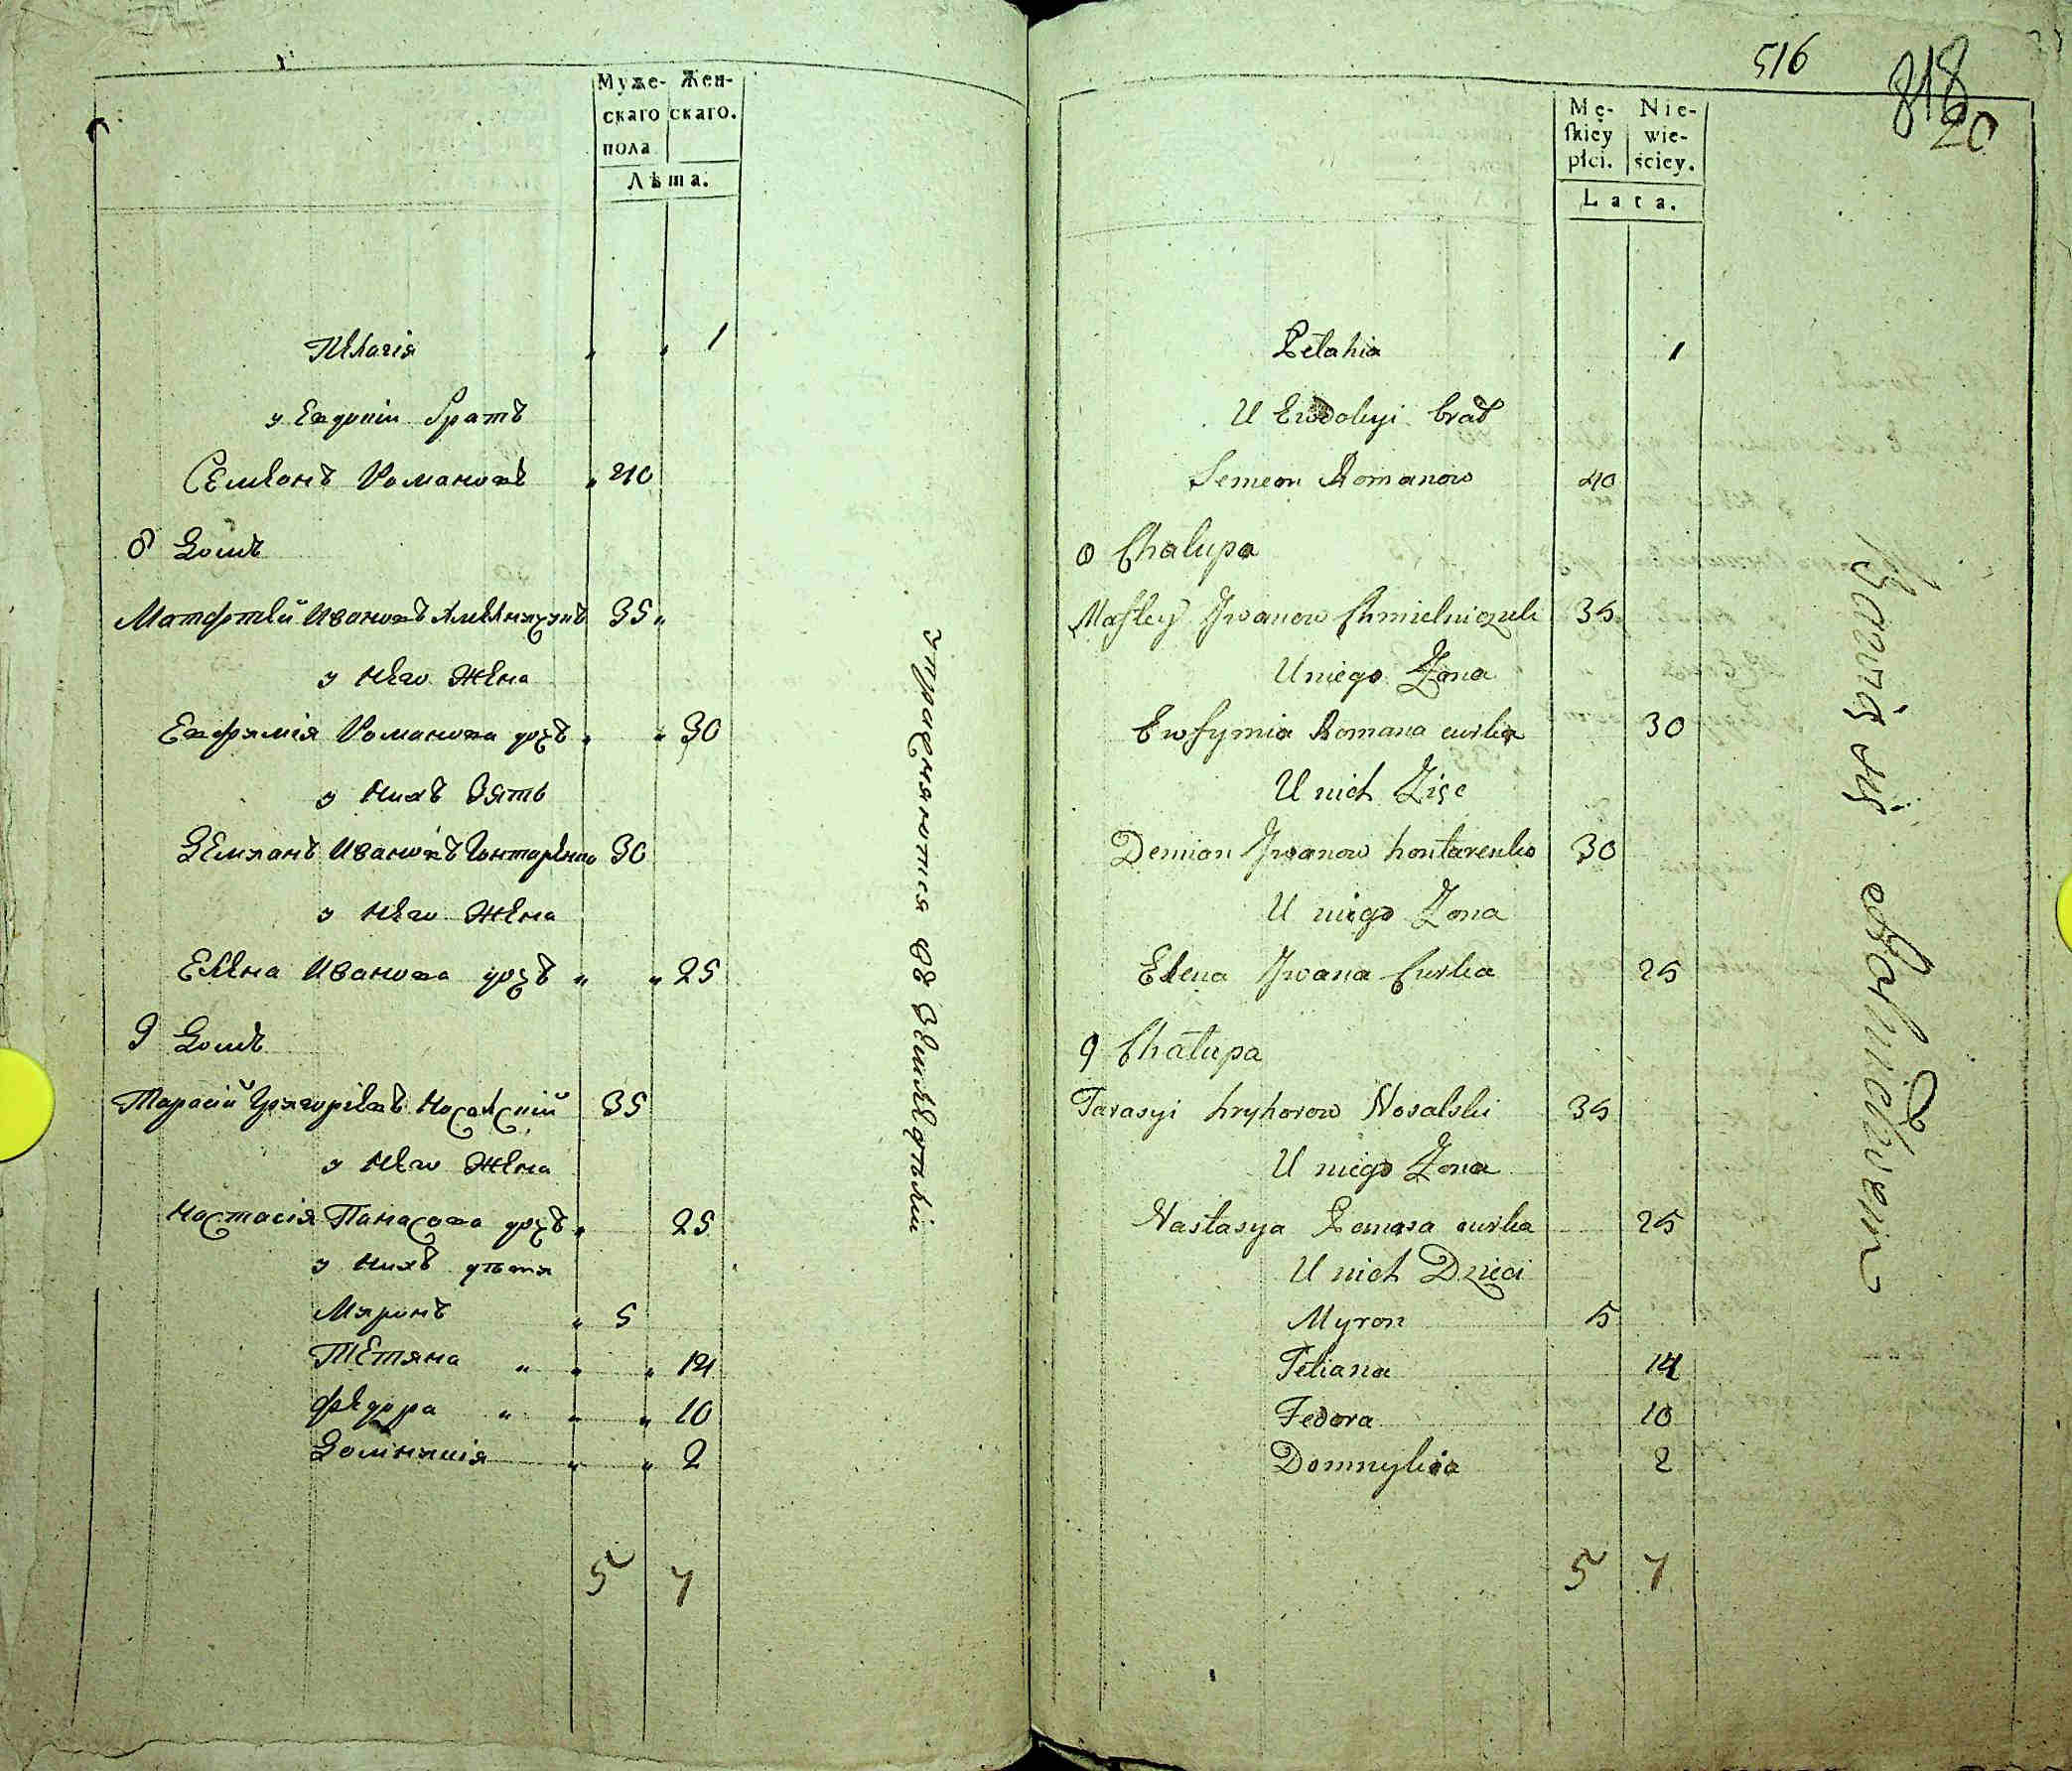 Муже- Жен-
скаго скаго.
пола
Лѣта.
Пелагія " " 1
у Евдокіи братъ
Семіонъ Романовъ " 40
8 Домъ
Матфтей Ивановъ Хмелнячукъ 35 "
у него жена
Евфимія Романова дочъ " " 30
у нихъ зять
Демянъ Ивановъ Гонтаренко 30
у него жена
Елена Иванова дочъ " " 25
9 Домъ
Тарасій Григоріевъ Носалскій 35
у него жена
Настасія Панасова дочъ " 25
у нихъ дѣтя
Миронъ " 5
Тетяна " " " 14
Федора " " " 10
Домникія " " 2
5 7
упражняются въ земледѣліи
516
818
20
Mę- Nie-
skiey wie-
płci. ściey.
Lata.
Pelahia 1
U Ewdokyi brat
Semeon Romanow 40
8 Chalupa
Matfey Iwanow Chmielniczuk 35
U niego Żona
Ewfymia Romana curka 30
U nich Zięc
Demian Iwanow hontarenko 30
U niego Żona
Elena Iwana Curka 25
9 Chałupa
Tarasyi hryhorow Nosalski 35
U niego Żona
Nastasya Panasa curka 25
U nich Dzieci
Myron 5
Tetiana 14
Fedora 10
Domnykia 2
5 7
Bawią się Rolnictwem